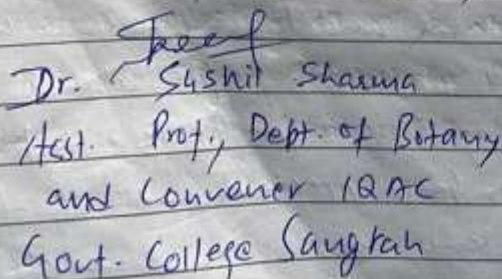 Dr. Sushil Sharma
Asst. Prof., Dept. of Botany
and Convener IQAC
Govt. College Sangrah